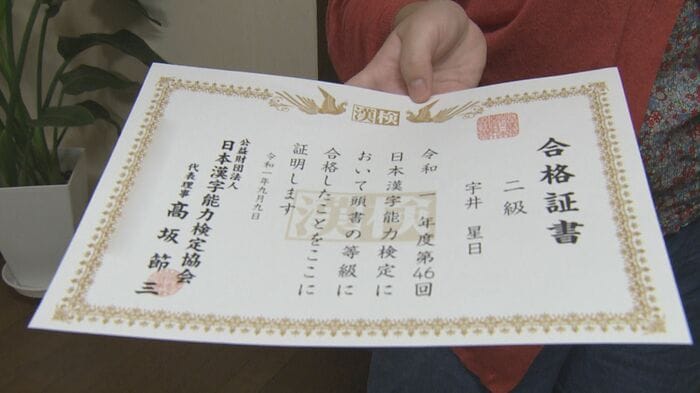 漢検
合格証書
二級
宇井 星日
令和 一 年度第46回
日本漢字能力検定に
おいて頭書の等級に
合格したことをここに
証明します
令和一年九月九日
公益財団法人
日本漢字能力検定協会
代表理事 髙坂節三
漢検